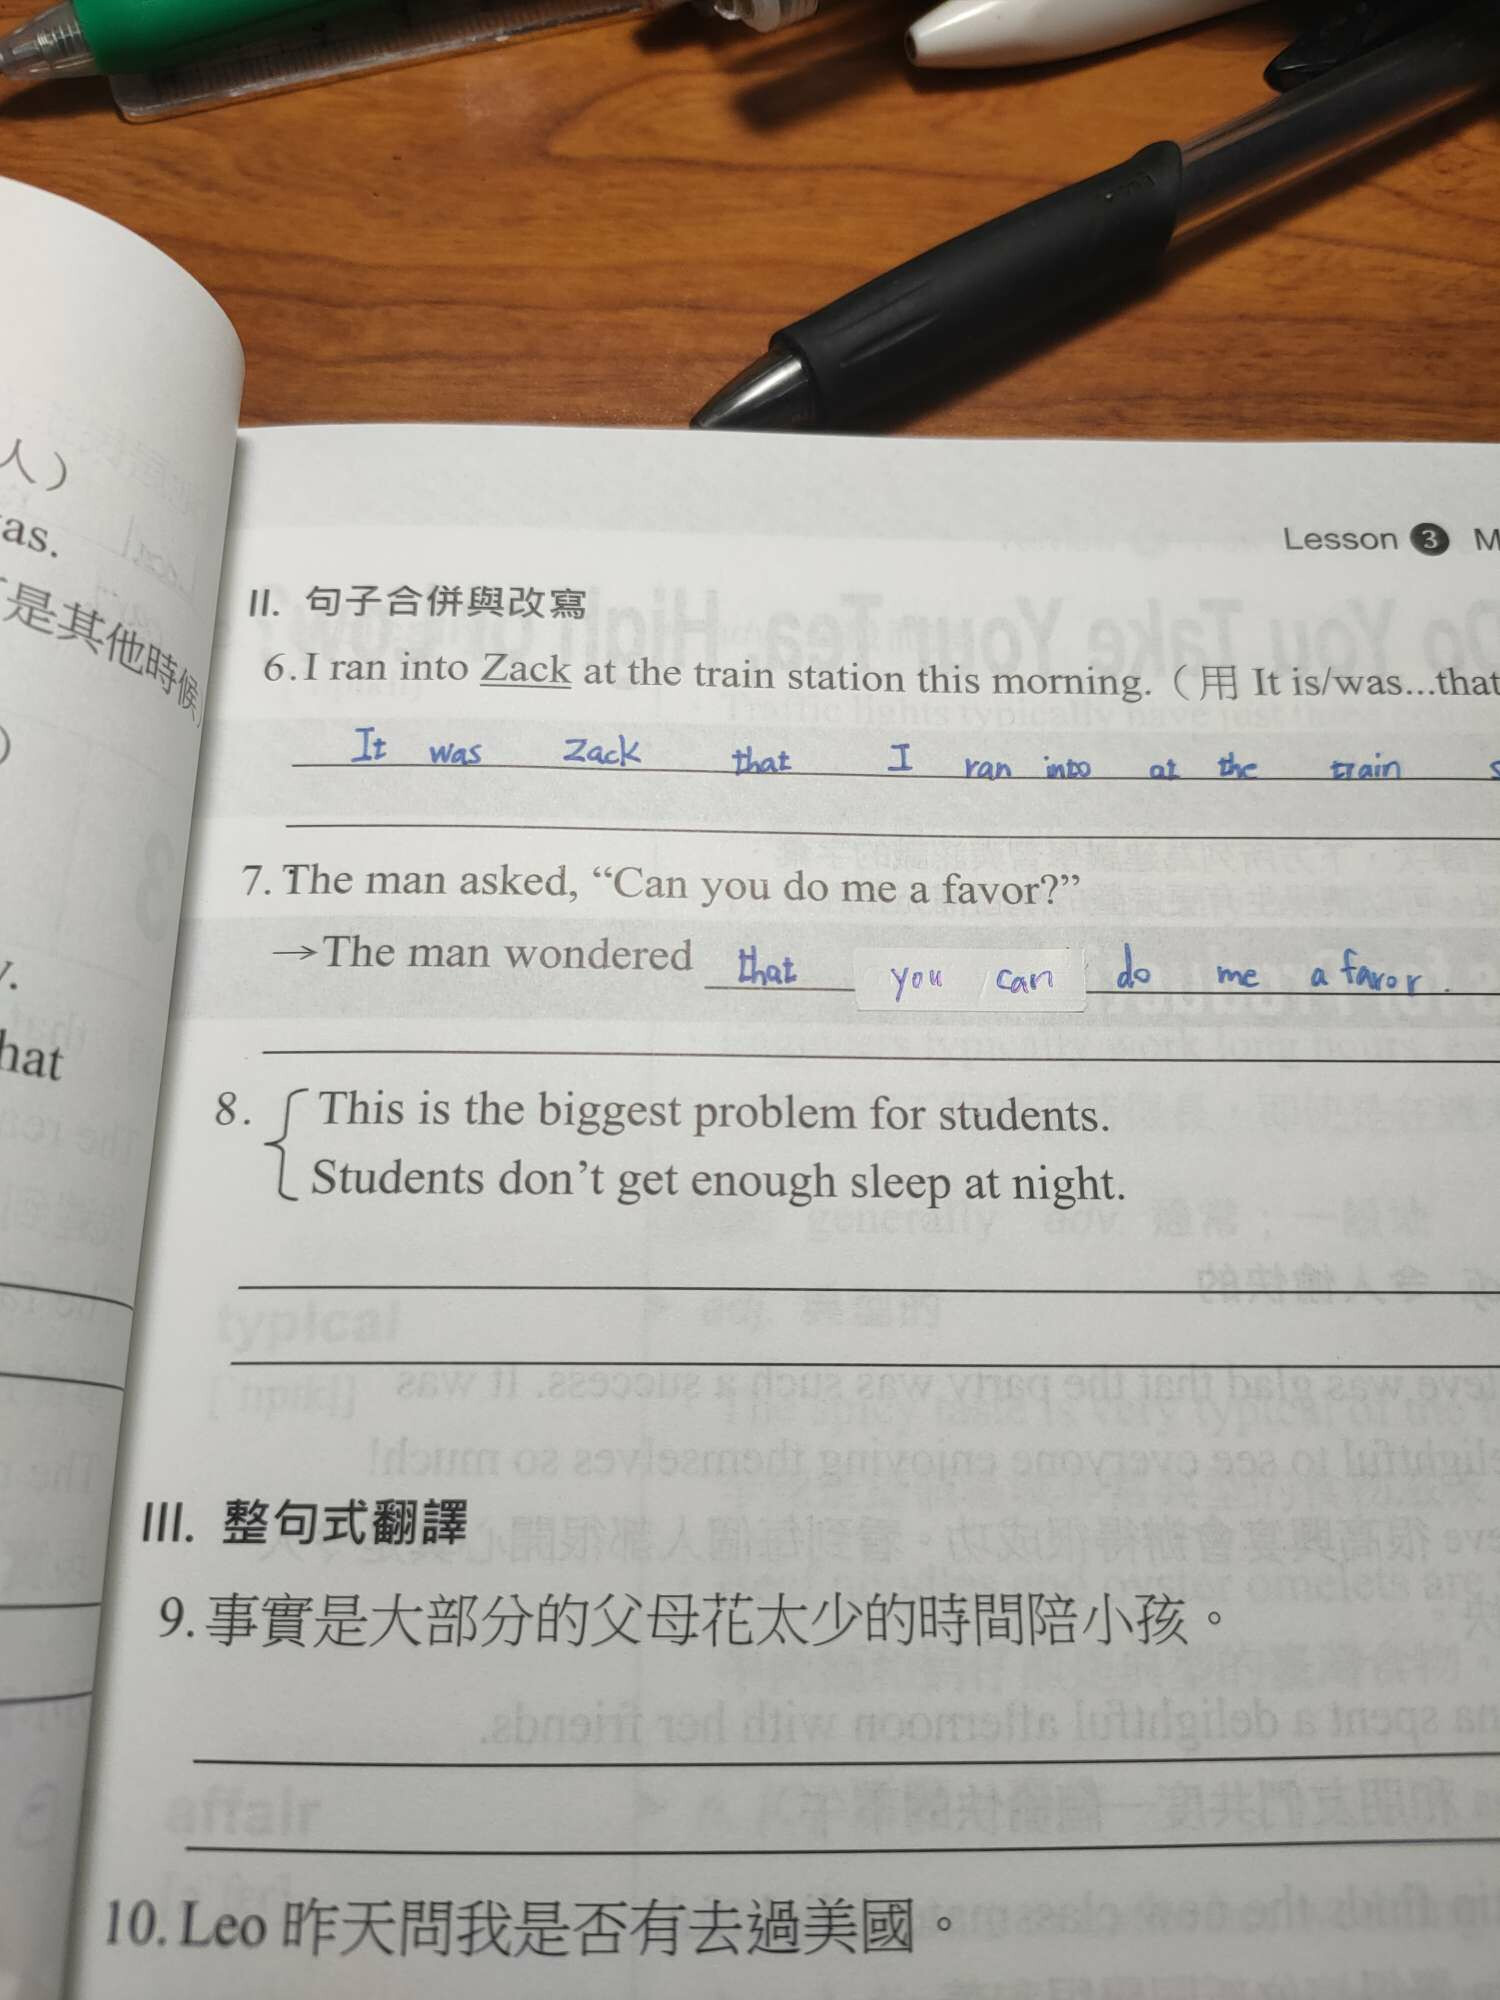 人）
as.
是其他時候
hat
Lesson 3 M
II. 句子合併與改寫
6. I ran into Zack at the train station this morning.（用 It is/was...that
It was Zack that I ran into at the train s
7. The man asked, “Can you do me a favor?”
→The man wondered that you can do me a favor.
8. This is the biggest problem for students.
Students don’t get enough sleep at night.
III. 整句式翻譯
9. 事實是大部分的父母花太少的時間陪小孩。
10. Leo 昨天問我是否有去過美國。